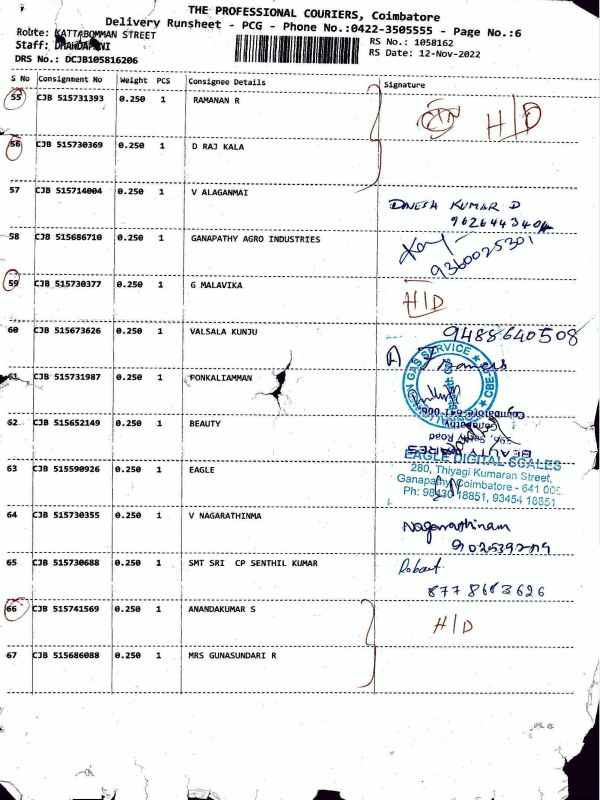 THE PROFESSIONAL COURIERS, Coimbatore
Delivery Runsheet - PCG - Phone No.:0422-3505555 - Page No.:6
Route: KATTABOMMAN STREET
RS No.: 1058162
Staff: DHANDAPANI
RS Date: 12-Nov-2022
DRS No.: DCJB105816206
S No Consignment No Weight PCS Consignee Details Signature
55 CJB 515731393 0.250 1 RAMANAN R H/D
56 CJB 515730369 0.250 1 D RAJ KALA
57 CJB 515714004 0.250 1 V ALAGANMAI DINESH KUMAR D
9626443404
58 CJB 515686710 0.250 1 GANAPATHY AGRO INDUSTRIES
9360025301
59 CJB 515730377 0.250 1 G MALAVIKA H/D
60 CJB 515673626 0.250 1 VALSALA KUNJU 9488640508
61 CJB 515731987 0.250 1 PONKALIAMMAN
GAS SERVICE
Coimbatore-641 006
62 CJB 515652149 0.250 1 BEAUTY
Ganapathy
Road
BEAUTY
63 CJB 515590926 0.250 1 EAGLE EAGLE DIGITAL SCALES
280, Thiyagi Kumaran Street,
Ganapathy, Coimbatore - 641 006
Ph: 98430 18851, 93454 18851
64 CJB 515730355 0.250 1 V NAGARATHINMA Nagarathinam
65 CJB 515730688 0.250 1 SMT SRI CP SENTHIL KUMAR Robert
8778663626
66 CJB 515741569 0.250 1 ANANDAKUMAR S H/D
67 CJB 515686088 0.250 1 MRS GUNASUNDARI R